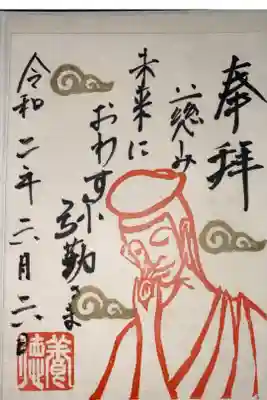 奉拝
慈み
未来に
おわす
弥勒さま
令和二年六月六日
養徳